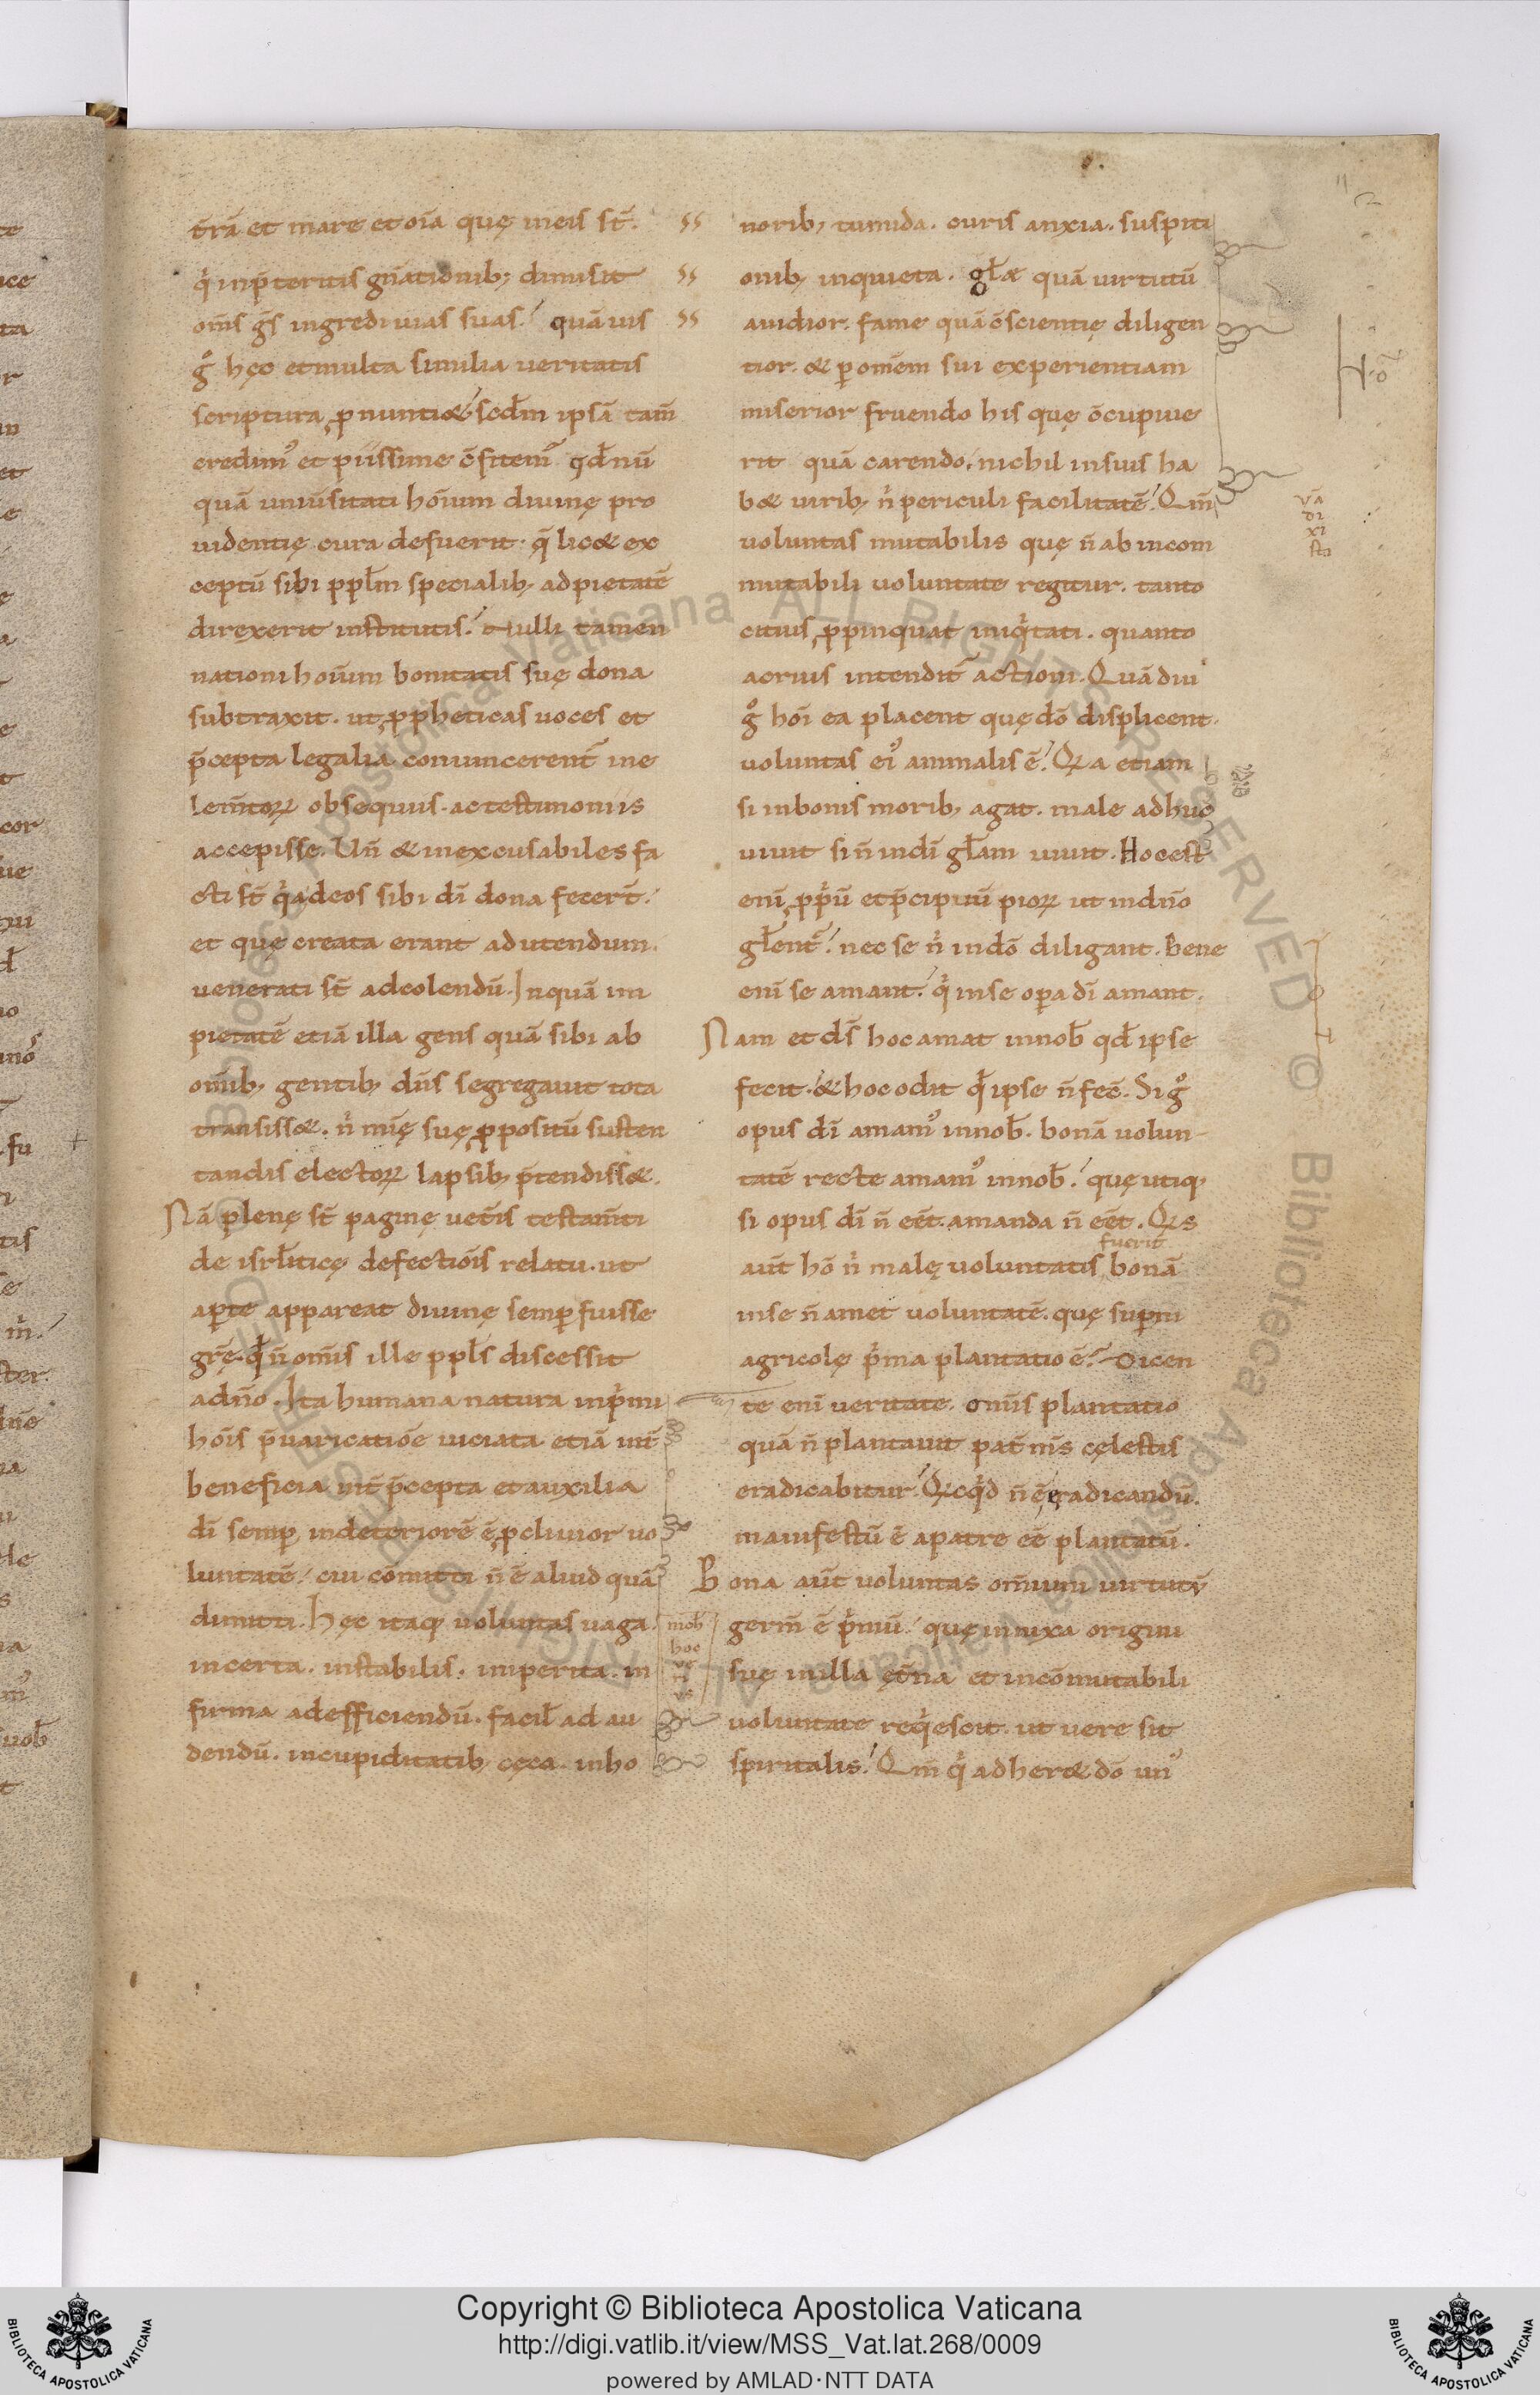 t̄rā et mare et oīa quę in eis st̄.
q̇ in p̄teritis gn̄ationib; dimisit
om̄s ḡs ingredi uias suas. quāuis
g̊ hęc et multa similia ueritatis
scriptura ꝓnuntiet sed̄m ipsā tam̄
credim᷒ et piissime c̄fitem᷒ qd̄ nū
quā uniūsitati hōium diuinę pro
uidentię cura defuerit. q̄ licet ex
ceptū sibi ppl̄m specialib; ad pietatē
direxerit institutis. Nulli tamen
nationi hoiūm bonitatis suę dona
subtraxit. ut ꝓpheticas uoces et
p̄cepta legalia conuincerent᷑ in e
lem̄toꝝ obsequiis. ac testimoniis
accepisse. Un̄ & inexcusabiles fa
cti st̄ q̇a deos sibi dī dona fecer̄t.
et quę creata erant ad utendum.
uenerati st̄ ad colendū. In quā im
pietatē etiā illa gens quā sibi ab
om̄ib; gentib; dn̄s segregauit tota
transisset. ṅ mīę suę ꝓpositū susten
tandis electoꝝ lapsib; p̄tendisset.
Nā plenę st̄ paginę uet̄is testam̄ti
de isrl̄iticę defectiōis relatu. ut
aꝑte appareat diuinę semꝑ fuisse
gr̄ę. qd̄ n̄ om̄is ille ppl̄s discessit
a dn̄o. Ita humana natura in ṗmi
hōis p̄uaricatiōe uiciata etiā int̄
beneficia int̄ p̄cepta et auxilia
dī semꝑ in deteriorē ē ꝓcliuior uo
luntatē. cui cōmitti n̄ ē aliud quā
dimitti. Hęc itaq; uoluntas uaga.
incerta. instabilis. imperita. in
firma ad efficiendū. facil̄ ad au
dendū. in cupiditatib; cęca. in ho
nob̄
hoc
ue
ti
us
norib; tumida. curis anxia. suspiti
onib; inquieta. gl̄æ quā uirtutū
auidior. fame quā c̄scientię diligen
tior. & ꝑ omēm sui experientiam
miserior fruendo his quę c̄cupiue
rit quā carendo. nichil in suis ha
bet uirib; ṅ periculi facilitatē. Qm̄
uoluntas mutabilis quę n̄ ab incom
mutabili uoluntate regitur. tanto
citius ꝓpinquat iniq̇tati. quanto
acrius intendit᷑ actioni. Quādiu
g̊ hōi ea placent quę dō displicent.
uoluntas ei᷒ animalis ē. Qa etiam
si in bonis morib; agat. male adhuc
uiuit si n̄ in dī gl̄am uiuit. Hoc est
enī ꝓṗū et p̄cipuū pioꝝ ut in dn̄o
gl̄ent᷑. nec se ṅ in dō diligant. Bene
enī se amant. q̇ in se oꝑa dī amant.
Nam et ds̄ hoc amat in nob̄ qd̄ ipse
fecit. & hoc odit qd̄ ipse n̄ fec̄. Si g̊
opus dī amam᷒ in nob̄. bonā uolun-
tatē recte amam᷒ in nob̄. quę utiq;
si opus dī n̄ eēt. amanda n̄ eēt. Qs
fuerit
aut̄ hō ṅ malę uoluntatis bonā
in se n̄ amet uoluntatē. quę suꝑni
agricolę ṗma plantatio ē. Dicen
te enī ueritate. omīs plantatio
quā n̄ plantauit pat̄ m̄s cęlestis
eradicabitur. Qcq̇d n̄ ē eradicandū.
manifestū ē a patre eē plantatū.
Bona aut̄ uoluntas om̄ium uirtutū
germ̄ ē ṗmū. quę innixa origini
suę in illa ęt̄na et incōmutabili
uoluntate req̇escit. ut uere sit
spiritalis. Qm̄ q̇ adheret dō un᷒
vā
di
xi
sta
Biblioteca Apostolica Vaticana ALL RIGHTS RESERVED ©
Copyright © Biblioteca Apostolica Vaticana
http://digi.vatlib.it/view/MSS_Vat.lat.268/0009
powered by AMLAD·NTT DATA
BIBLIOTECA APOSTOLICA VATICANA
BIBLIOTECA APOSTOLICA VATICANA